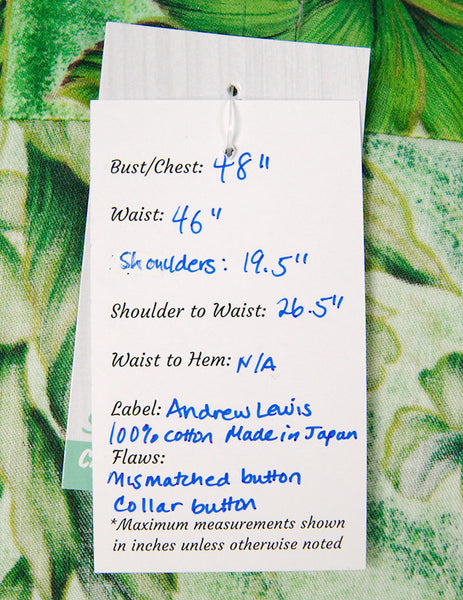 Bust/Chest: 48"
Waist: 46"
Shoulders: 19.5"
Shoulder to Waist: 26.5"
Waist to Hem: N/A
Label: Andrew Lewis
100% cotton Made in Japan
Flaws:
Mismatched button
Collar button
*Maximum measurements shown
in inches unless otherwise noted